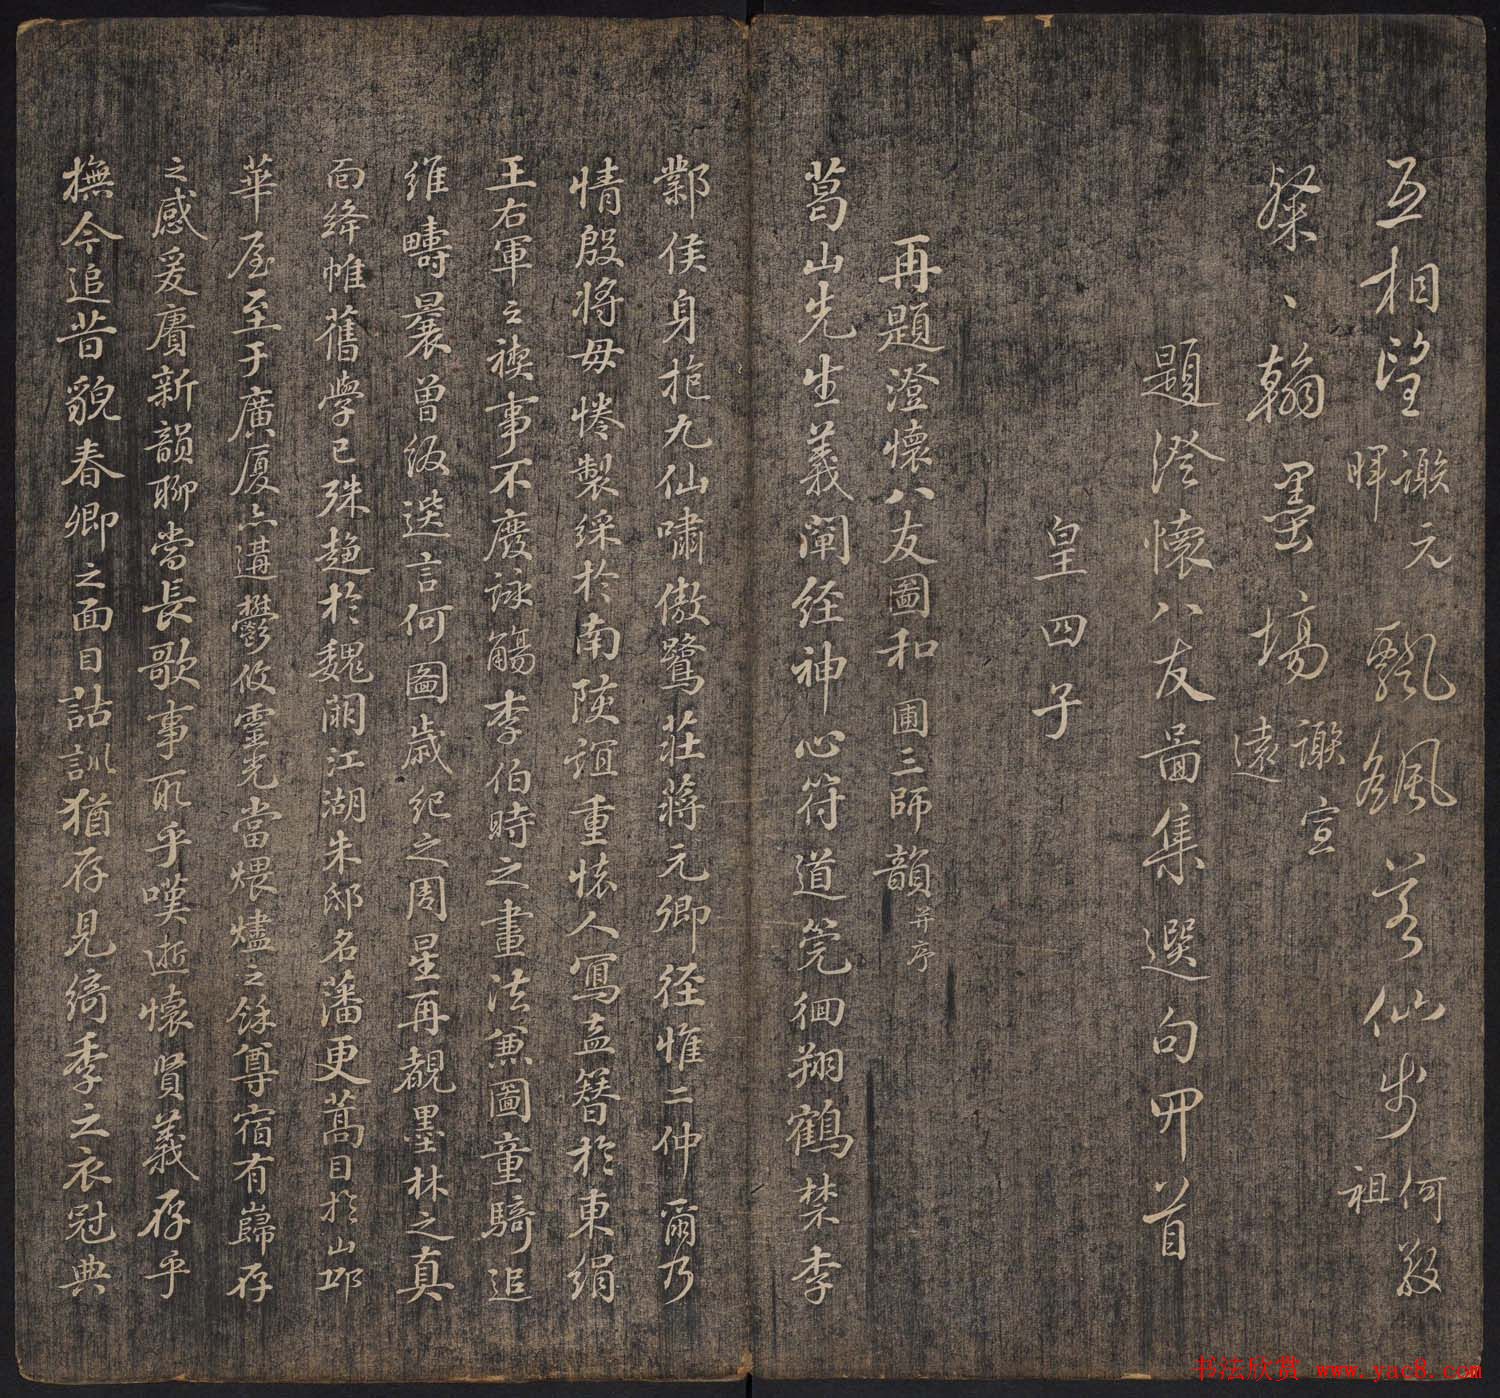 互相望 謝元暉 飄颻若仙步 何敬祖
粲、翰墨場 謝宣遠
題澄懷八友圖集選句四首
皇四子
再題澄懷八友圖和圃三師韻 并序
葛山先生義闡經神心符道筦徊翔鶴禁李
鄴侯身抱九仙嘯傲鷺莊蔣元卿徑惟二仲爾乃
情殷將母惓製綵於南陔誼重懷人寫盍簪於東絹
王右軍之禊事不廢詠觴李伯時之畫法兼圖童騎追
維疇曩曾綴談言何圖歲紀之周星再覩墨林之真
面絳帷舊學已殊趨於魏闕江湖朱邸名藩更蒿目於山邱
華屋至于廣廈亦遘鬱攸靈光當煨燼之餘尊宿有巋存
之感爰賡新韻聊當長歌事取乎嘆逝懷賢義存乎
撫今追昔貌春卿之面目詁訓猶存見綺季之衣冠典
书法欣赏 www.yac8.com